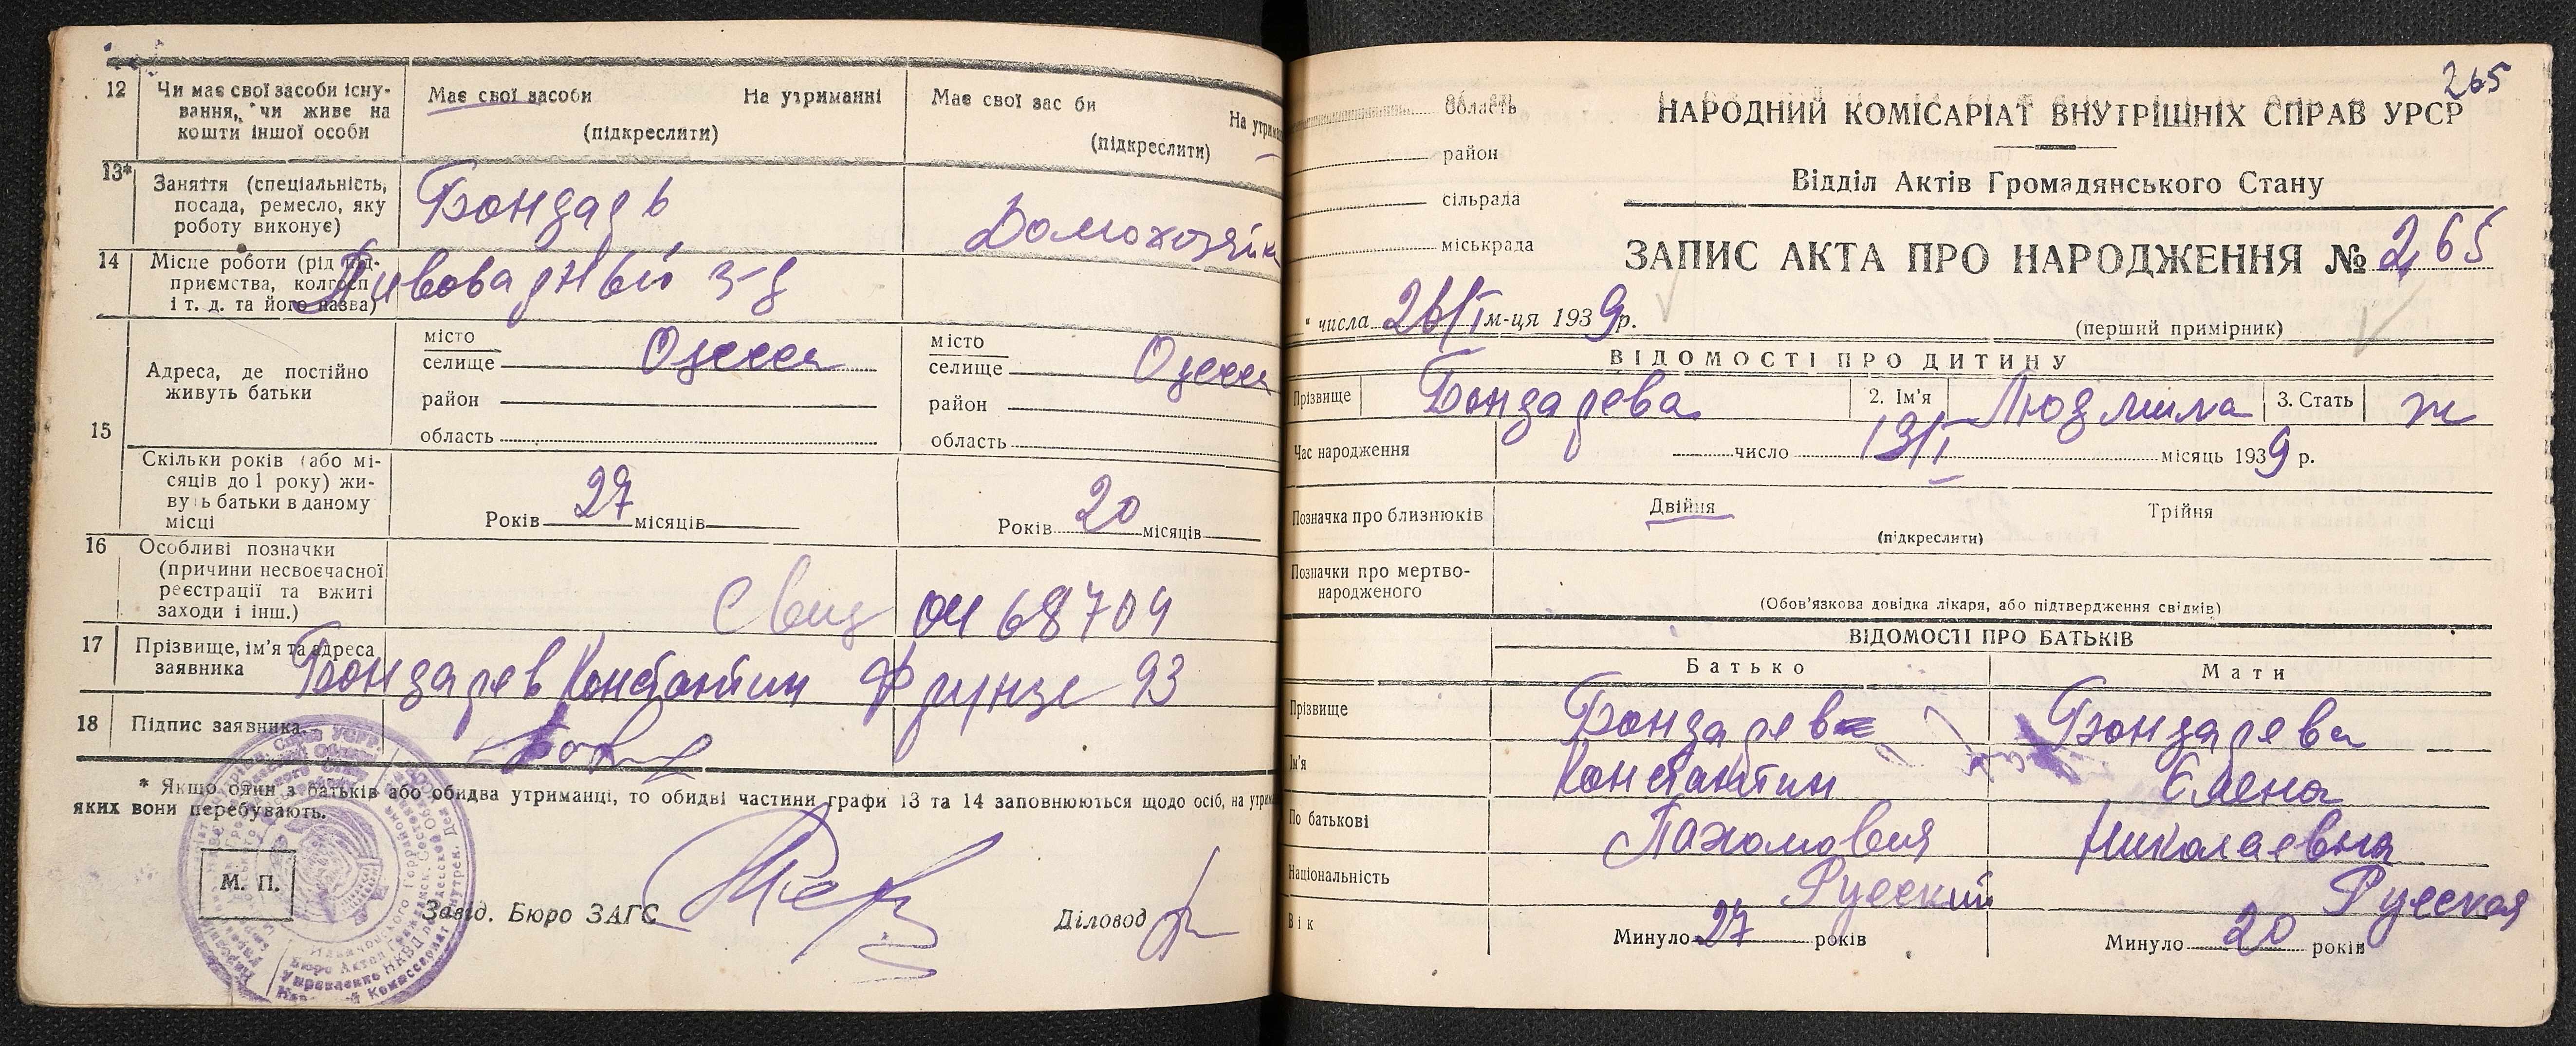 12
Чи має свої засоби існу-
вання, чи живе на
кошти іншої особи
Має свої засоби На утриманні
(підкреслити)
Має свої зас би
На утрим
(підкреслити)
13*
Заняття (спеціальність,
посада, ремесло, яку
роботу виконує)
Бондарь
Домохозяйка
14
Місце роботи (рід під-
приємства, колгосп
і т. д. та його назва)
Пивоварный з-д
15
Адреса, де постійно
живуть батьки
місто
селище Одесса
район
область
місто
селище Одесса
район
область
Скільки років (або мі-
сяців до 1 року) жи-
вуть батьки в даному
місці
Років 27 місяців
Років 20 місяців
16
Особливі позначки
(причини несвоєчасної
реєстрації та вжиті
заходи і інш.)
Свид 68704
17
Прізвище, ім'я та адреса
заявника
Бондарев Константин Фрунзе 93
18
Підпис заявника
* Якщо один з батьків або обидва утриманці, то обидві частини графи 13 та 14 заповнюються щодо осіб, на утрим
яких вони перебувають.
М. П.
Завід. Бюро ЗАГС
Діловод
265
область
район
сільрада
міськрада
НАРОДНИЙ КОМІСАРІАТ ВНУТРІШНІХ СПРАВ УРСР
Відділ Актів Громадянського Стану
ЗАПИС АКТА ПРО НАРОДЖЕННЯ № 265
числа 26/I м-ця 1939 р.
(перший примірник)
ВІДОМОСТІ ПРО ДИТИНУ
Прізвище Бондарева 2. Ім'я Людмила 3. Стать ж
Час народження число 13/I місяць 1939 р.
Позначка про близнюків Двійня Трійня
(підкреслити)
Позначки про мертво-
народженого
(Обов'язкова довідка лікаря, або підтвердження свідків)
ВІДОМОСТІ ПРО БАТЬКІВ
Батько Мати
Прізвище Бондарев Бондарева
Ім'я Константин Елена
По батькові Пахомович Николаевна
Національність Русский Русская
Вік Минуло 27 років Минуло 20 років